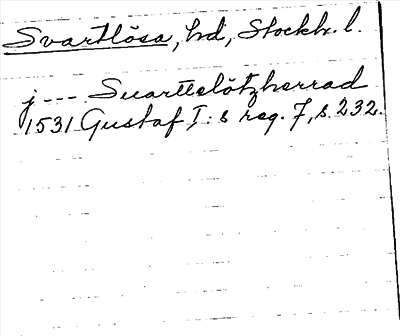 Svartlösa, hd, Stockh. l.
j --- Suarttelötzherrad
1531 Gustaf I:s reg. 7, s. 232.